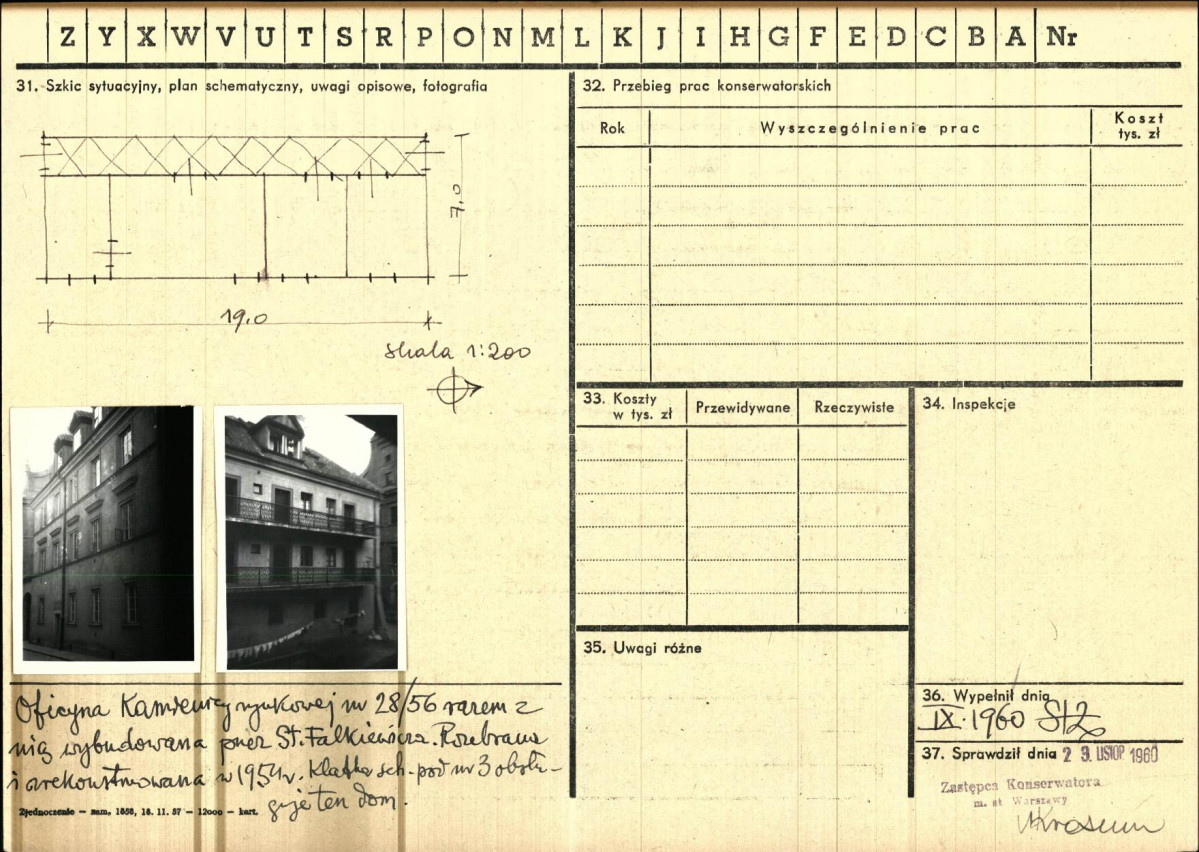 Z Y X W V U T S R P O N M L K J I H G F E D C B A Nr
31. Szkic sytuacyjny, plan schematyczny, uwagi opisowe, fotografia
7,0
19,0
skala 1:200
Oficyna Kamienicy rynkowej nr 28/56 razem z
nią wybudowana przez St. Falkiewicza. Rozebrana
i zrekonstruowana w 1954 r. Klatka sch. pod nr 3 obsłu-
guje ten dom.
Zjednoczenie — zam. 1858, 18. 11. 57 — 12000 — kart.
32. Przebieg prac konserwatorskich
Rok
Wyszczególnienie prac
Koszt
tys. zł
33. Koszty
w tys. zł
Przewidywane
Rzeczywiste
34. Inspekcje
35. Uwagi różne
36. Wypełnił dnia
IX. 1960
37. Sprawdził dnia 2 9. LISTOP 1960
Zastępca Konserwatora
m. st. Warszawy